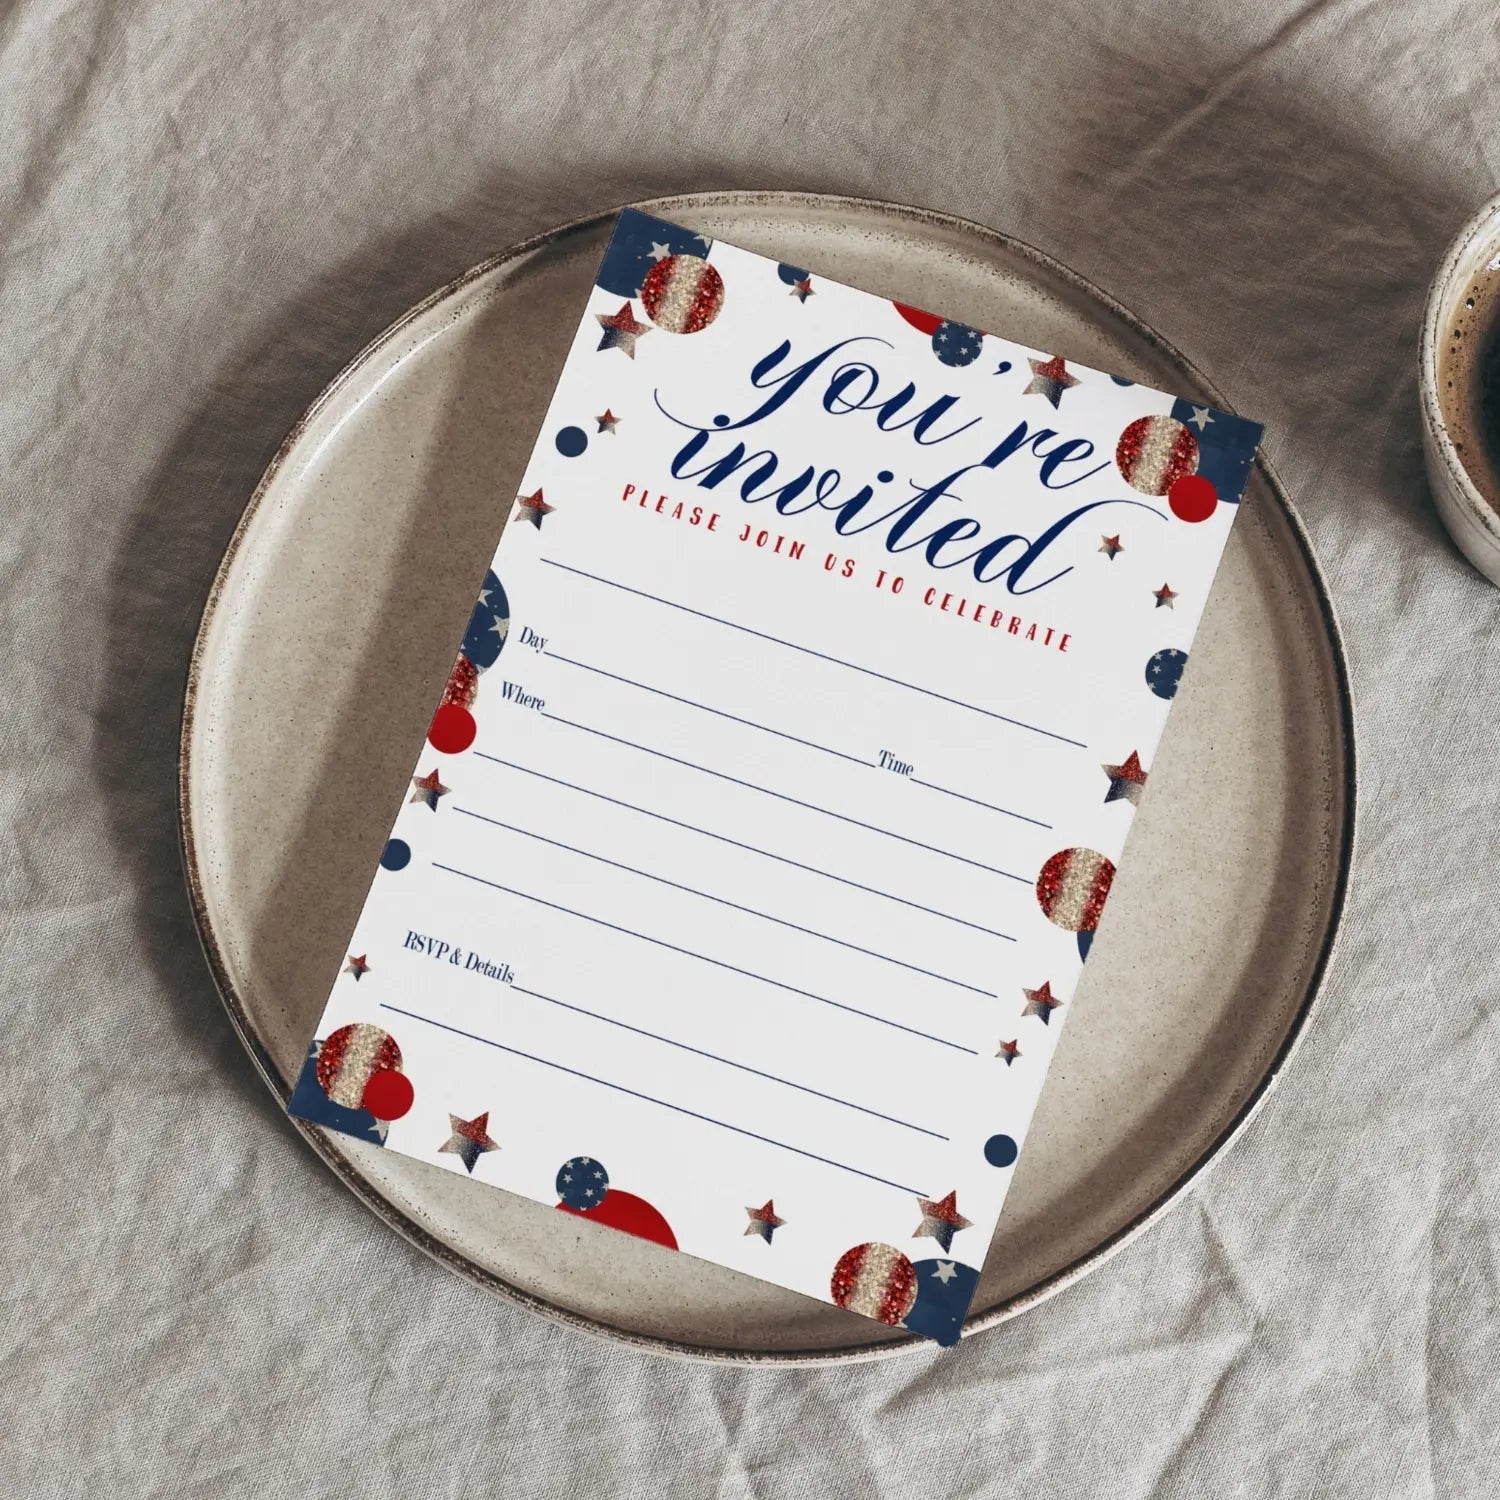 you're
invited
PLEASE JOIN US TO CELEBRATE
Day
Time
Where
RSVP & Details